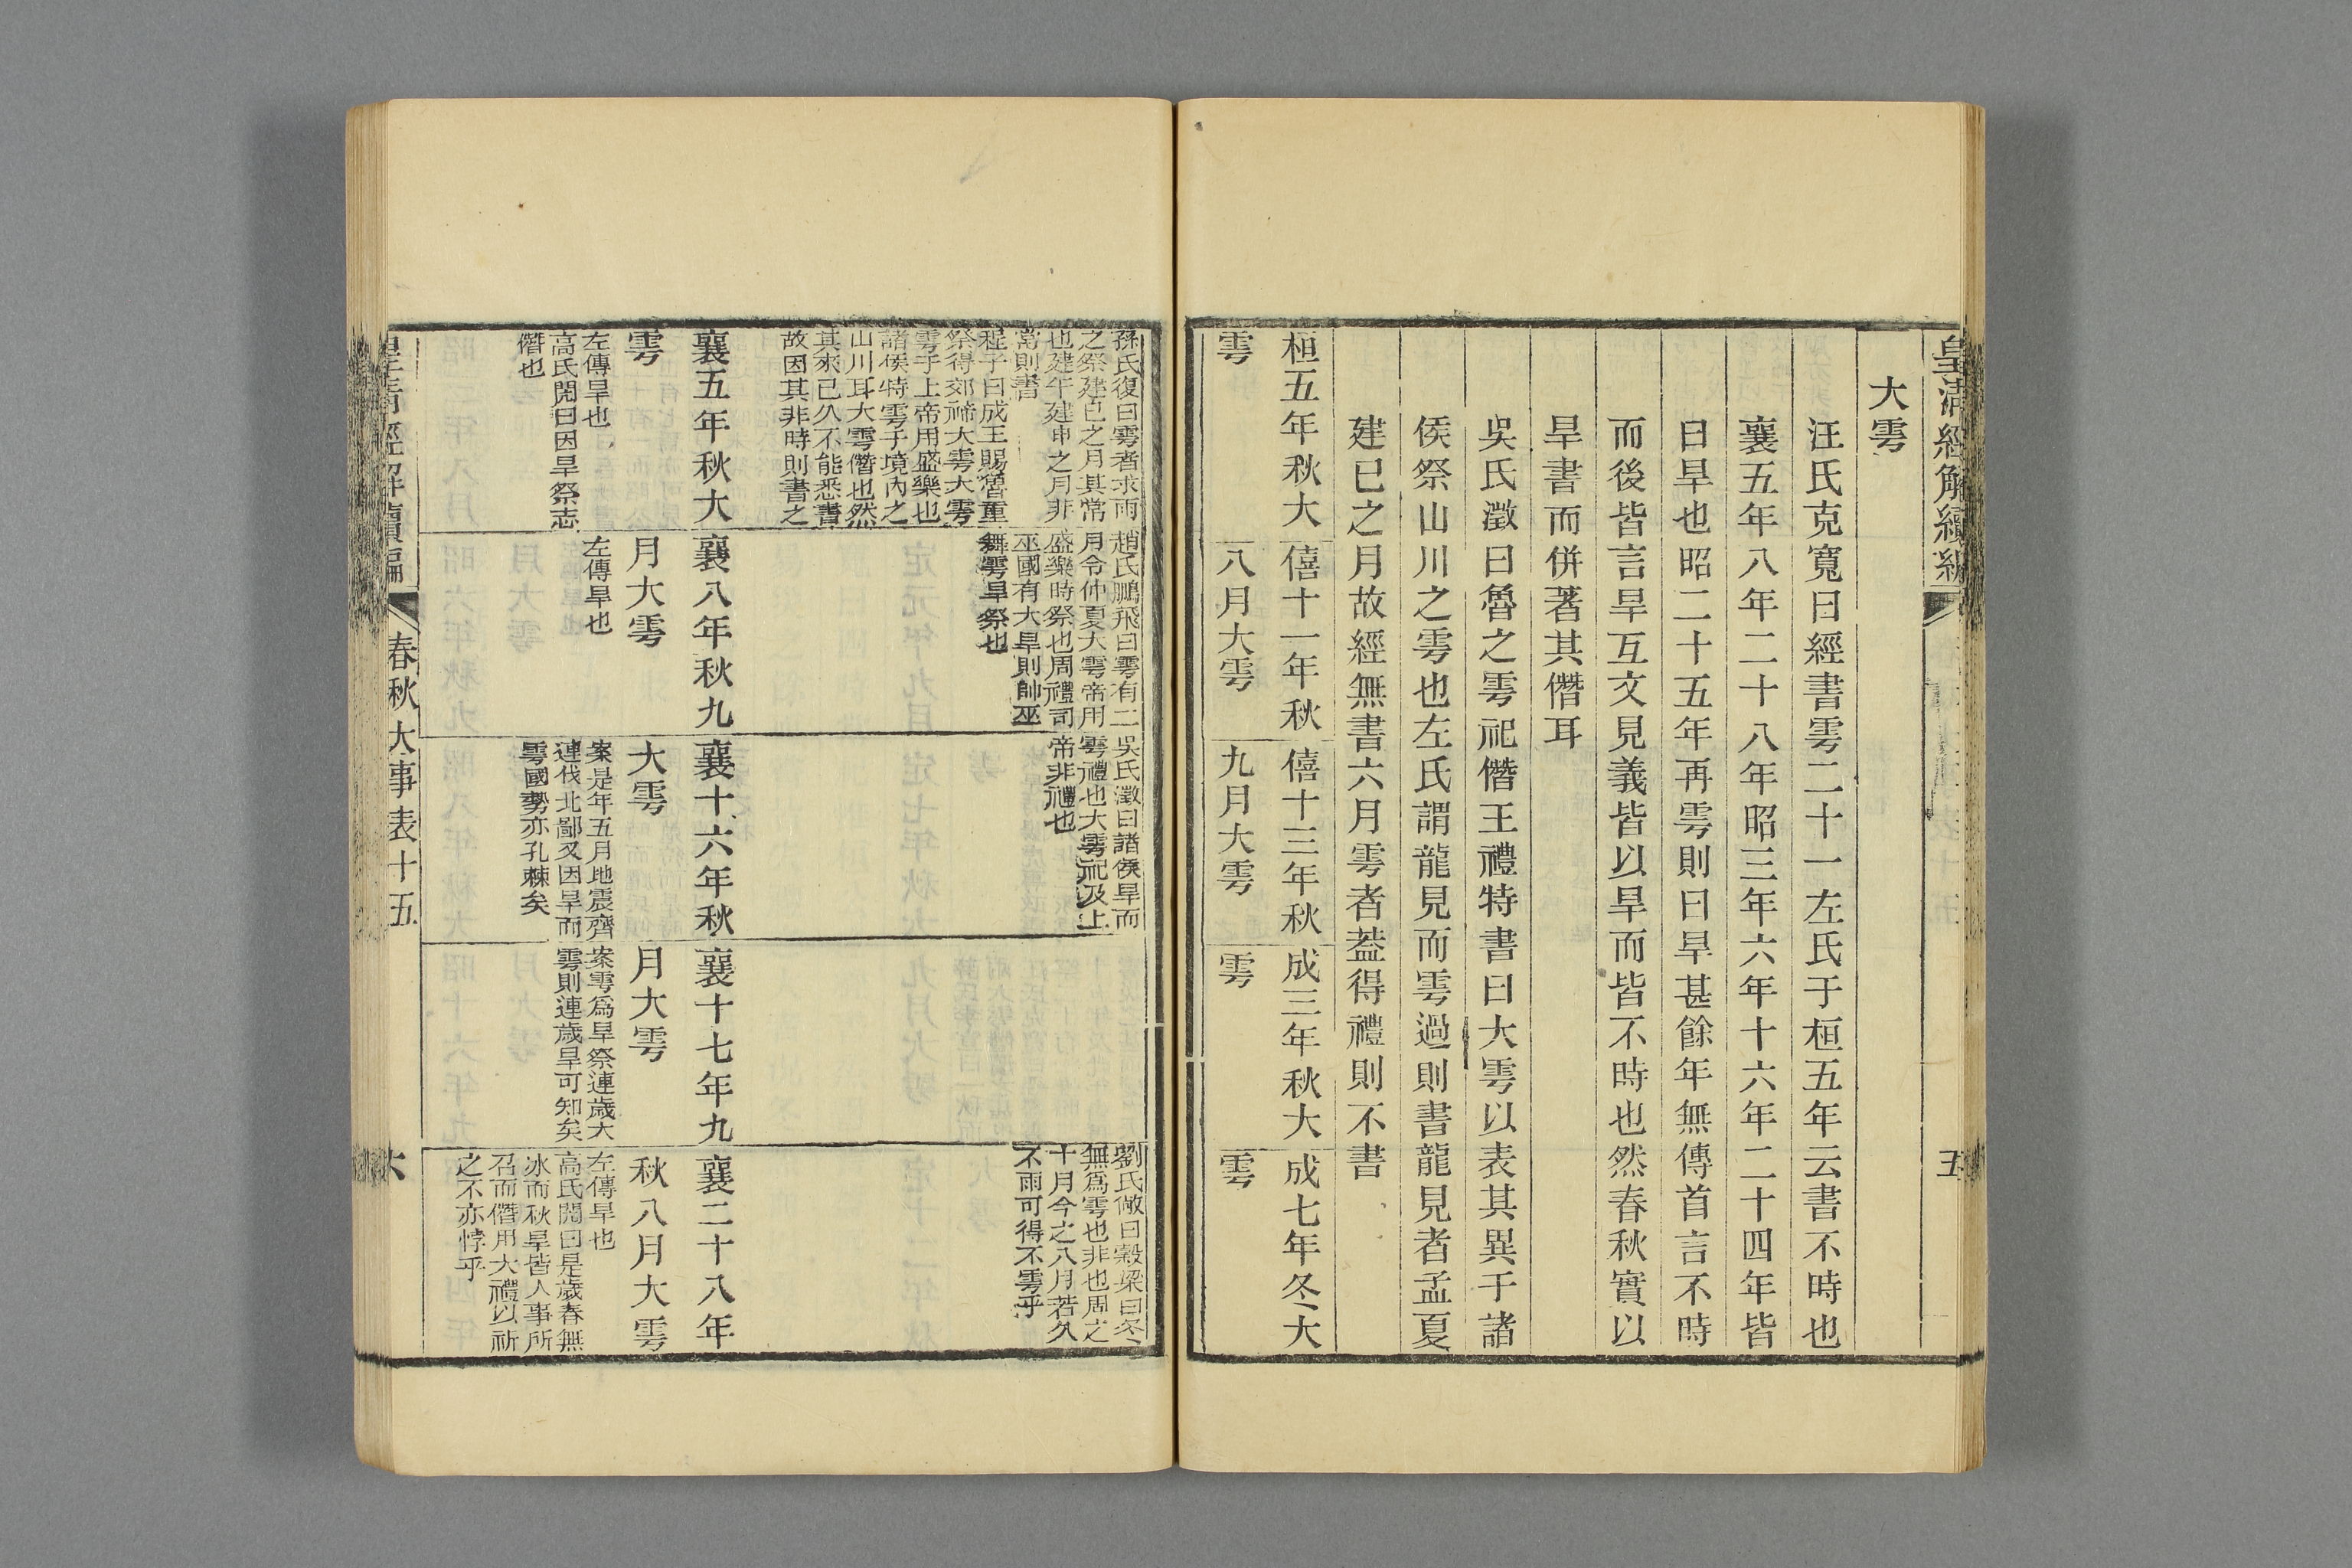 皇清經解續編
五
大雩
汪氏克寬曰經書雩二十一左氏于桓五年云書不時也
襄五年八年二十八年昭三年六年十六年二十四年皆
曰旱也昭二十五年再雩則曰旱甚餘年無傳首言不時
而後皆言旱互文見義皆以旱而皆不時也然春秋實以
旱書而併著其僭耳
吳氏澂曰魯之雩祀僭王禮特書曰大雩以表其異于諸
侯祭山川之雩也左氏謂龍見而雩過則書龍見者孟夏
建巳之月故經無書六月雩者葢得禮則不書
桓五年秋大
雩
僖十一年秋
八月大雩
僖十三年秋
九月大雩
成三年秋大
雩
成七年冬大
雩
孫氏復曰雩者求雨
之祭建巳之月其常
也建午建申之月非
常則書
程子曰成王賜魯重
祭得郊禘大雩大雩
雩于上帝用盛樂也
諸侯特雩于境內之
山川耳大雩僭也然
其來已久不能悉書
故因其非時則書之
趙氏鵬飛曰雩有二
月令仲夏大雩帝用
盛樂時祭也周禮司
巫國有大旱則帥巫
舞雩旱祭也
吳氏澂曰諸侯旱而
雩禮也大雩祀及上
帝非禮也
劉氏敞曰穀梁曰冬
無爲雩也非也周之
十月今之八月若久
不雨可得不雩乎
襄五年秋大
雩
左傳旱也
高氏閌曰因旱祭志
僭也
襄八年秋九
月大雩
左傳旱也
襄十六年秋
大雩
案是年五月地震齊
連伐北鄙又因旱而
雩國勢亦孔棘矣
襄十七年九
月大雩
案雩爲旱祭連歲大
雩則連歲旱可知矣
襄二十八年
秋八月大雩
左傳旱也
高氏閌曰是歲春無
冰而秋旱皆人事所
召而僭用大禮以祈
之不亦悖乎
皇清經解續編
春秋大事表十五